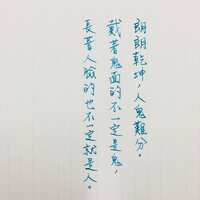 朗朗乾坤,人鬼難分。
戴著鬼面的不一定是鬼,
長著人臉的也不一定就是人。